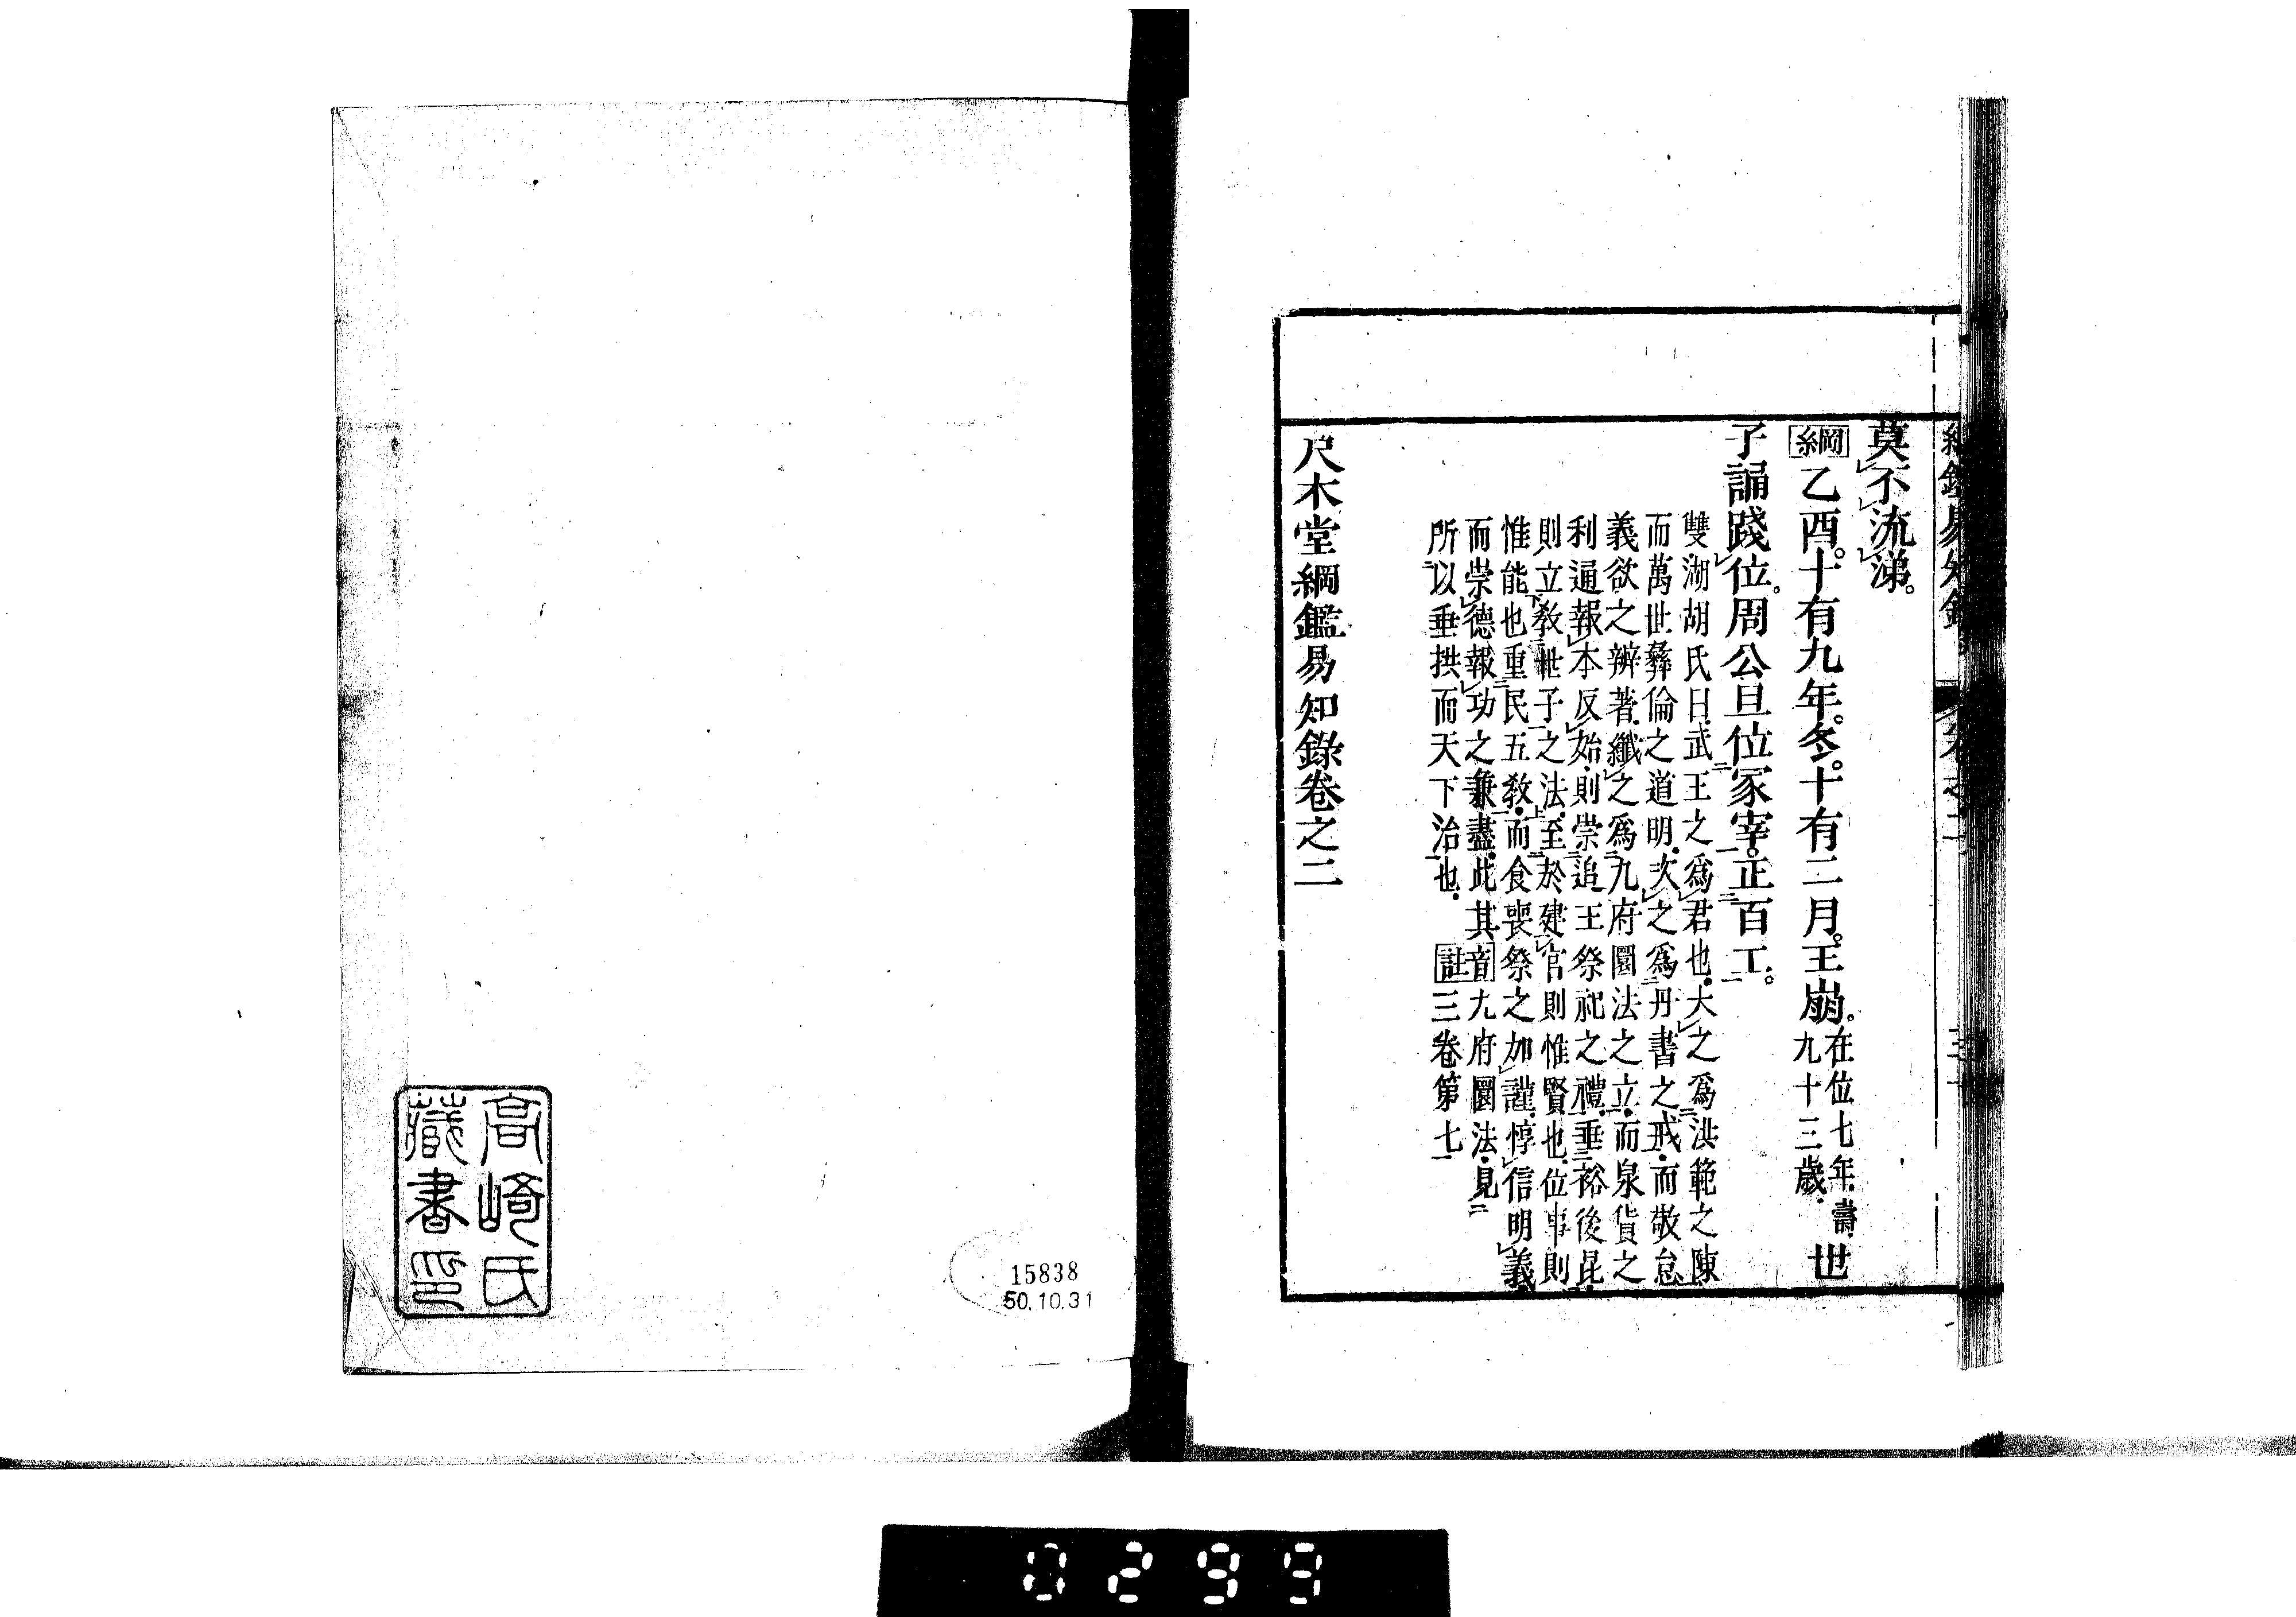 莫不流涕。
綱乙酉。十有九年。冬。十有二月。王崩。在位七年。壽九十三歲。世
子誦踐位。周公旦位冢宰。正百工。
雙湖胡氏曰。武王之爲君也。大之爲洪範之陳
而萬世彝倫之道明。次之爲丹書之戒。而敬怠
義欲之辨著。纖之爲九府圜法之立。而泉貨之
利通。報本反始。則崇追王祭祀之禮。垂裕後昆
則立敎世子之法。至於建官則惟賢也。位事則
惟能也。重民五敎。而食喪祭之加謹。惇信明義
而崇德報功之兼盡。此其
所以垂拱而天下治也。
音九府圜法。見
註三卷第七
尺木堂綱鑑易知錄卷之二
高崎氏
藏書印
15838
50.10.31
0299